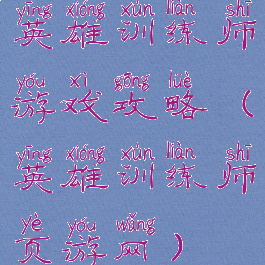 yīng xióng xùn liàn shī
英雄训练师
yóu xì gōng lüè
游戏攻略（
yīng xióng xùn liàn shī
英雄训练师
yè yóu wǎng
页游网）